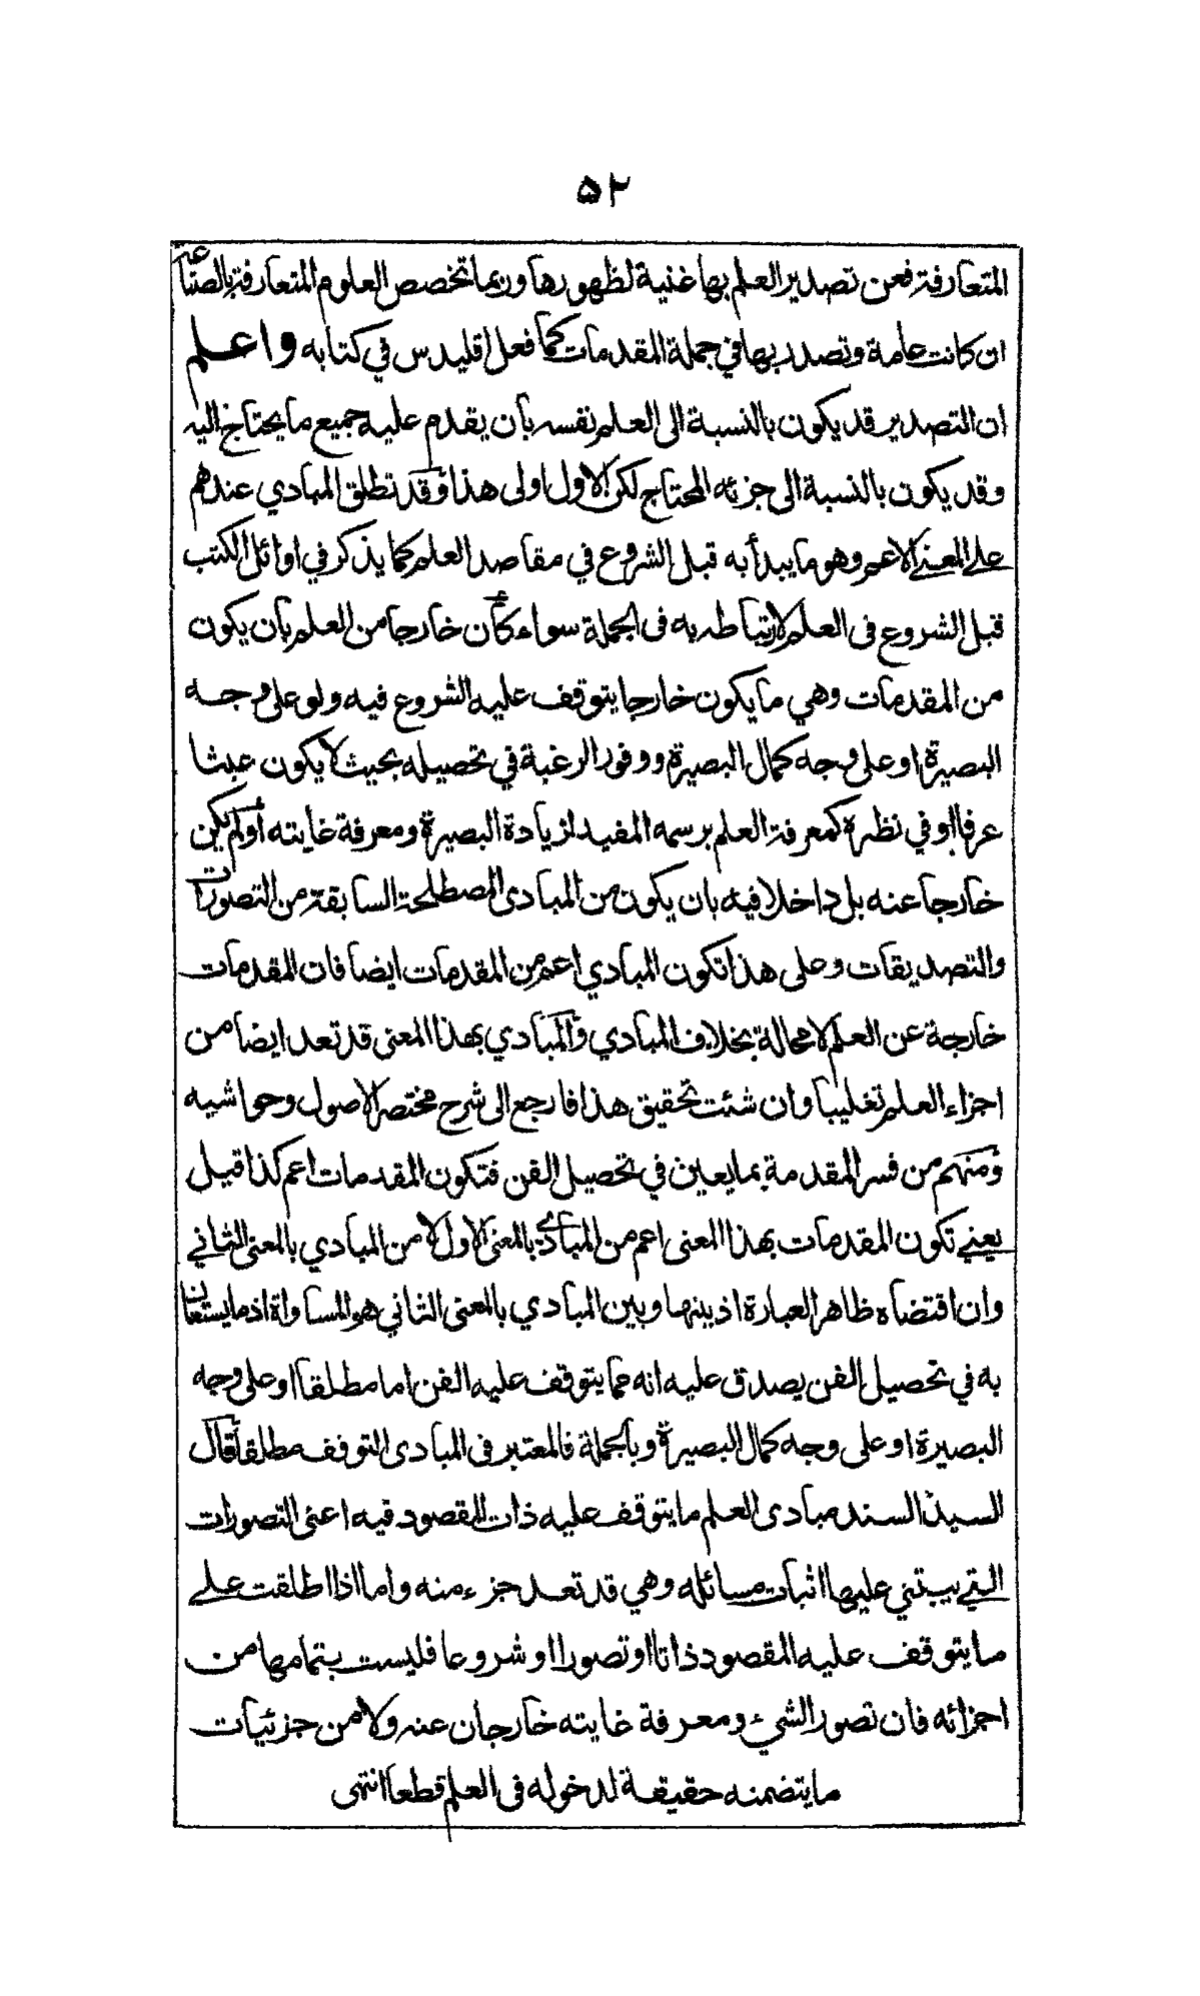 ۵۲
المتعارفة فعن تصدير العلم بها غنية لظهورها وربما تخصص العلوم المتعارفة بالصناعة
ان كانت عامة وتصدر بها في جملة المقدمات كما فعل اقليدس في كتابه واعلم
ان التصدير قد يكون بالنسبة الى العلم نفسه بان يقدم عليه جميع ما يحتاج اليه
وقد يكون بالنسبة الى جزئه المحتاج لكن الاول اولى هذا وقد تطلق المبادي عندهم
على المعنى الاعم وهو ما يبدأ به قبل الشروع في مقاصد العلم كما يذكر في اوائل الكتب
قبل الشروع في العلم لارتباطه به في الجملة سواء كان خارجا من العلم بان يكون
من المقدمات وهي ما يكون خارجا يتوقف عليه الشروع فيه ولو على وجه
البصيرة او على وجه كمال البصيرة ووفور الرغبة في تحصيله بحيث لا يكون عبثا
عرفا او في نظره كمعرفة العلم برسمه المفيد لزيادة البصيرة ومعرفة غايته أولم يكن
خارجا عنه بل داخلا فيه بان يكون من المبادى المصطلحة السابقة من التصورات
والتصديقات وعلى هذا تكون المبادي اعم من المقدمات ايضا فان المقدمات
خارجة عن العلم لا محالة بخلاف المبادي والمبادي بهذا المعنى قد تعد ايضا من
اجزاء العلم تغليبا وان شئت تحقيق هذا فارجع الى شرح مختصر الاصول وحواشيه
ومنهم من فسر المقدمة بما يعين في تحصيل الفن فتكون المقدمات اعم كذا قيل
يعني تكون المقدمات بهذا المعنى اعم من المبادي بالمعنى الاول لا من المبادي بالمعنى الثاني
وان اقتضاه ظاهر العبارة اذ بينها وبين المبادي بالمعنى الثاني هو المساواة اذ ما يستعان
به في تحصيل الفن يصدق عليه انه مما يتوقف عليه الفن اما مطلقا او على وجه
البصيرة او على وجه كمال البصيرة وبالجملة فالمعتبر في المبادى التوقف مطلقا قال
السيد السند مبادى العلم ما يتوقف عليه ذات المقصود فيه اعني التصورات
التي يبتني عليها اثبات مسائله وهي قد تعد جزء منه واما اذا اطلقت على
ما يتوقف عليه المقصود ذاتا او تصورا او شروعا فليست بتمامها من
اجزائه فان تصور الشيء ومعرفة غايته خارجان عنه ولا من جزئيات
ما يتضمنه حقيقة لدخوله في العلم قطعا انتهى